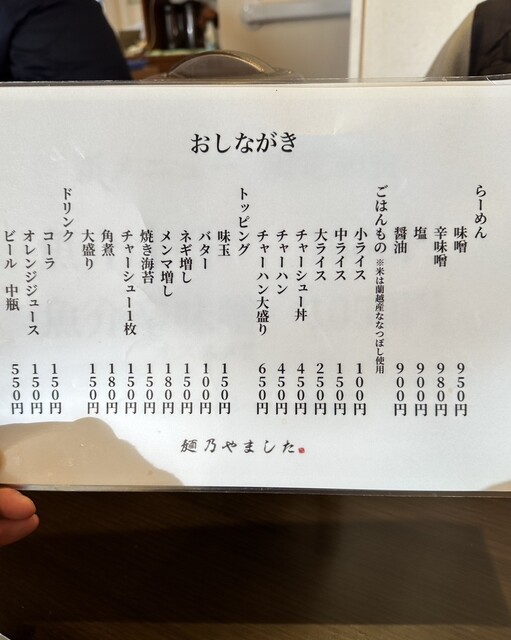 おしながき
らーめん
味噌 950円
辛味噌 980円
塩 900円
醤油 900円
ごはんもの ※米は蘭越産ななつぼし使用
小ライス 100円
中ライス 150円
大ライス 250円
チャーシュー丼 450円
チャーハン 450円
チャーハン大盛り 650円
トッピング
味玉 150円
バター 100円
ネギ増し 150円
メンマ増し 180円
焼き海苔 150円
チャーシュー1枚 150円
角煮 180円
大盛り 150円
ドリンク
コーラ 150円
オレンジジュース 150円
ビール 中瓶 550円
麺乃やました